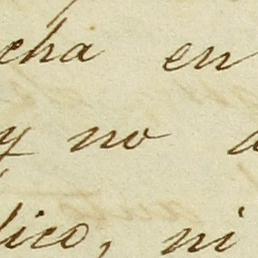 cha en
y no
lico, ni